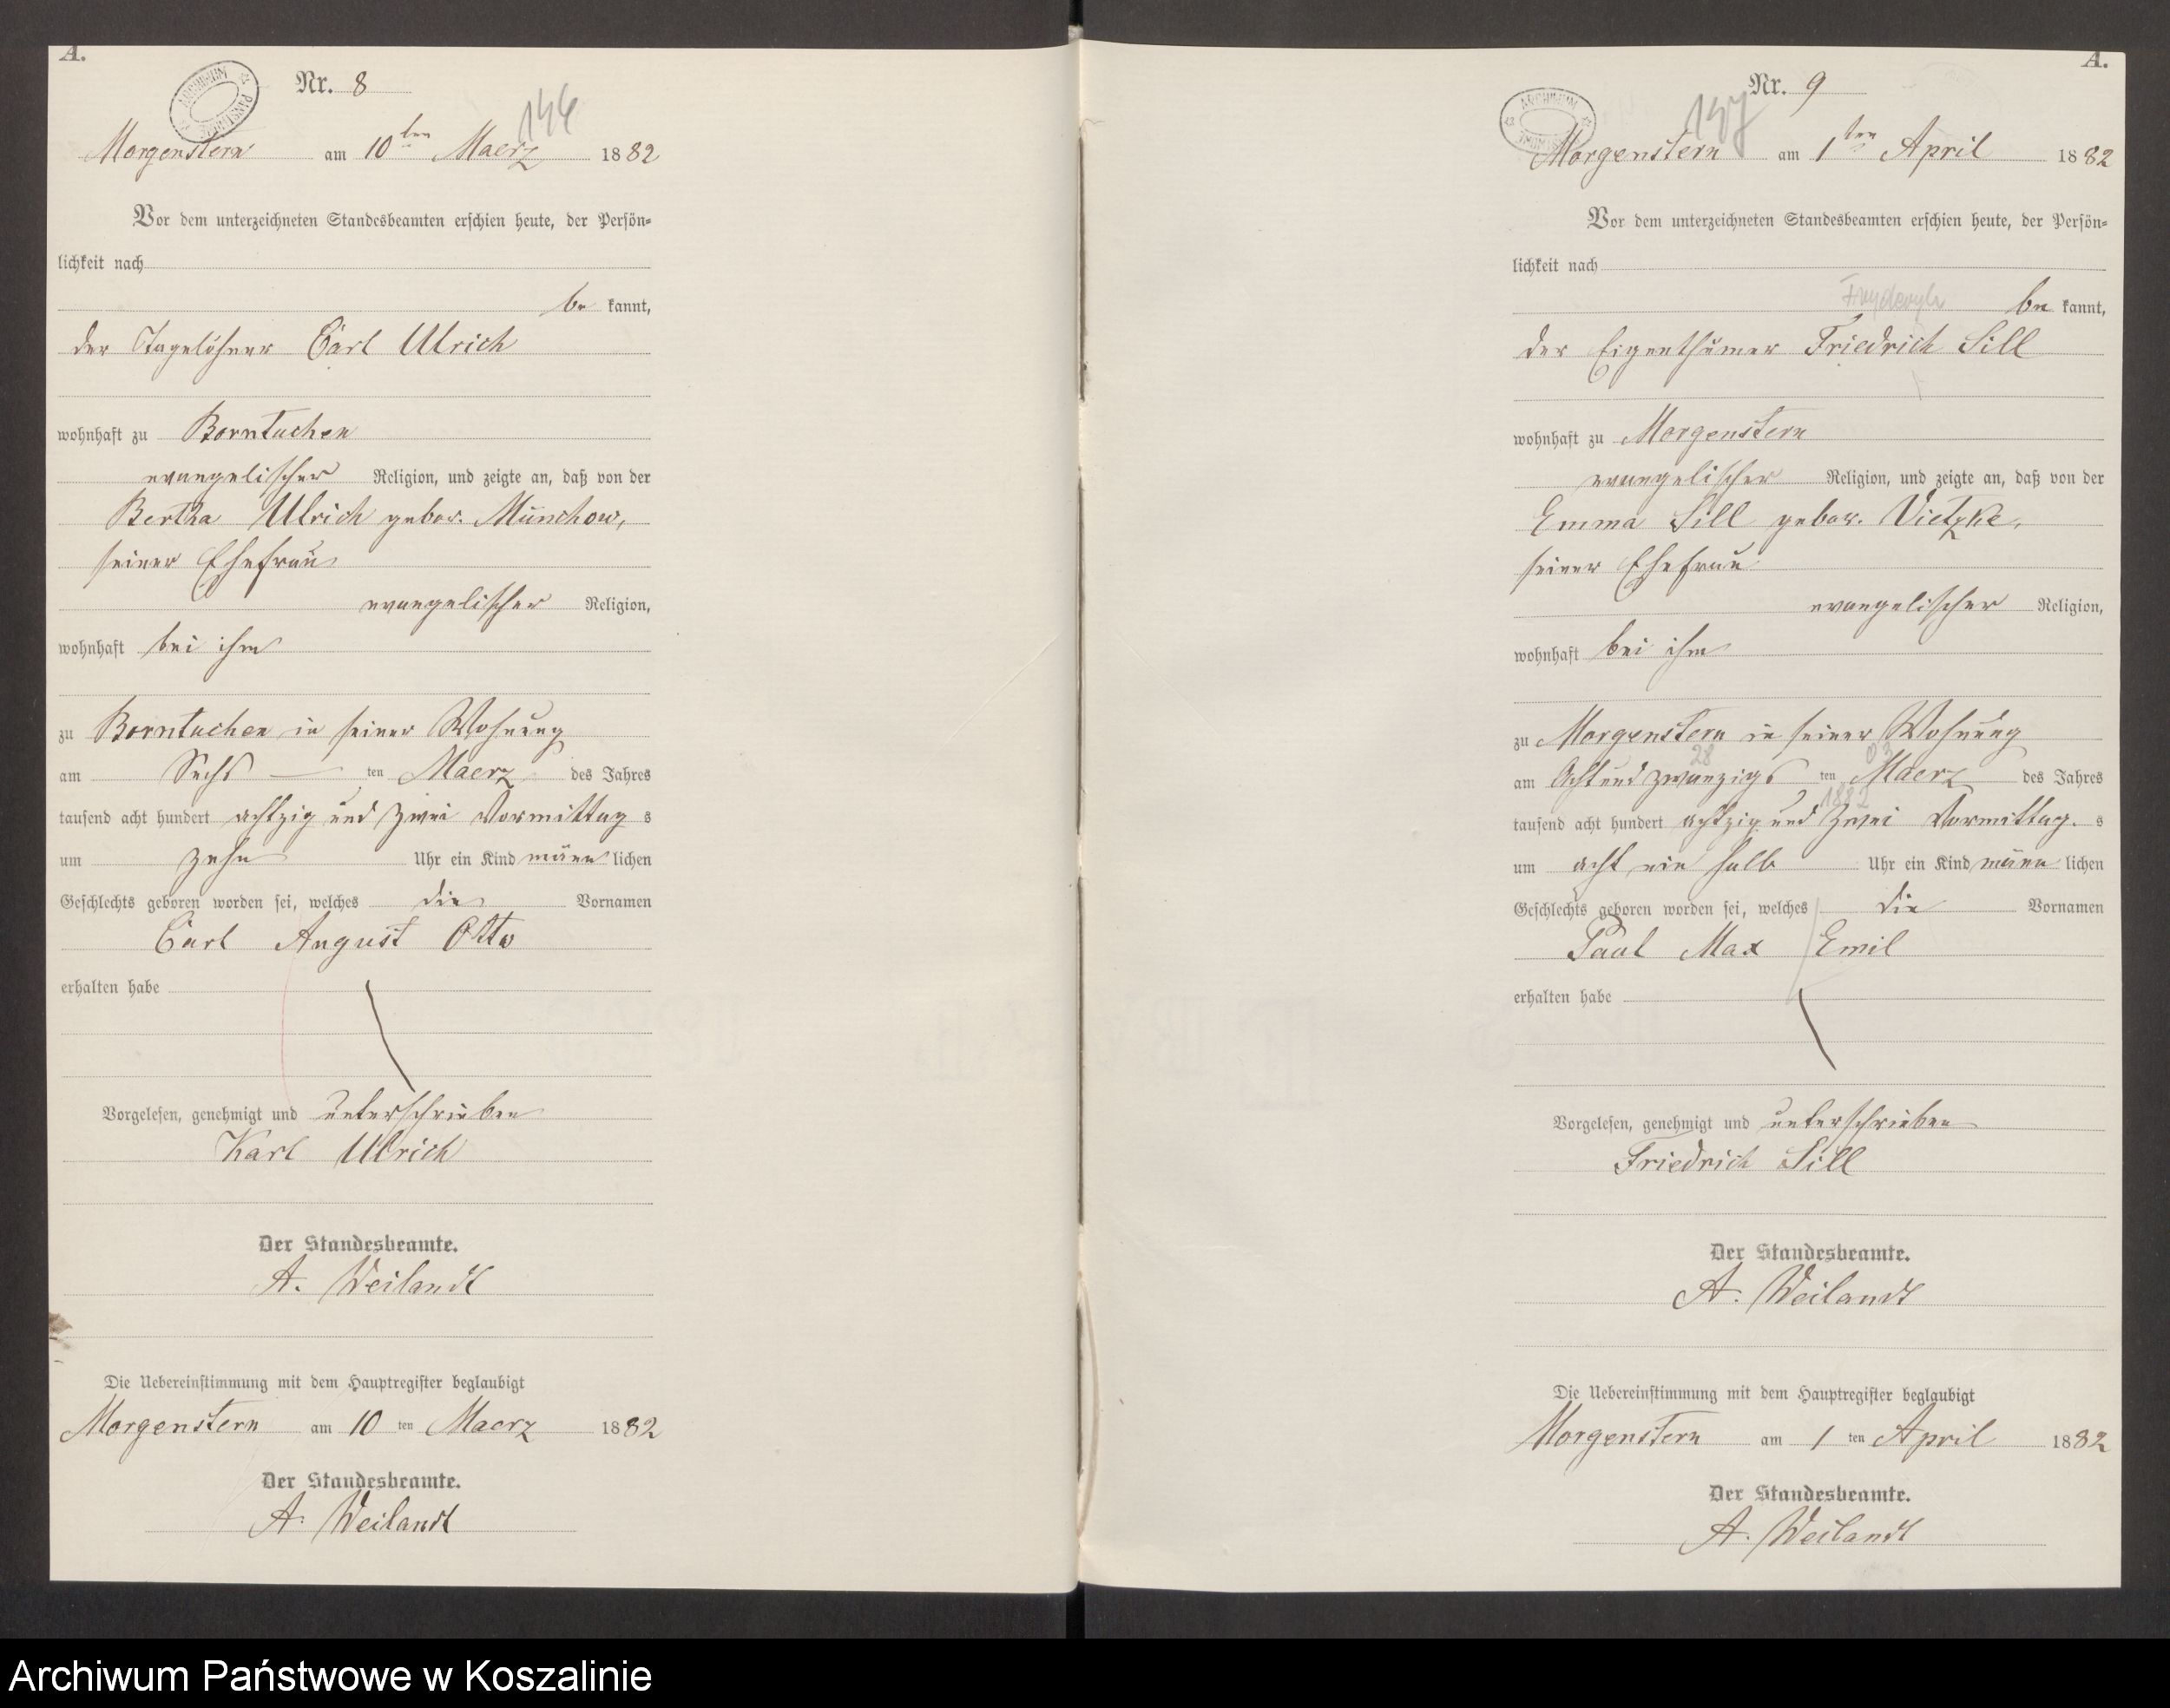 A.
Nr. 8
146
Morgenstern am 10ten Maerz 1882
Vor dem unterzeichneten Standesbeamten erschien heute, der Persön-
lichkeit nach
be kannt,
der Tagelöhner Carl Ulrich
wohnhaft zu Borntuchen
evangelischer Religion, und zeigte an, daß von der
Bertha Ulrich gebor. Münchow,
seiner Ehefrau
evangelischer Religion,
wohnhaft bei ihm
zu Borntuchen in seiner Wohnung
am Sechs ten Maerz des Jahres
tausend acht hundert achtzig und zwei Vormittag s
um zehn Uhr ein Kind männ lichen
Geschlechts geboren worden sei, welches die Vornamen
Carl August Otto
erhalten habe
Vorgelesen, genehmigt und unterschrieben
Karl Ulrich
Der Standesbeamte.
A. Weilandt
Die Uebereinstimmung mit dem Hauptregister beglaubigt
Morgenstern am 10 ten Maerz 1882
Der Standesbeamte.
A. Weilandt
A.
Nr. 9
147
ARCHIWUM
Morgenstern am 1ten April 1882
Vor dem unterzeichneten Standesbeamten erschien heute, der Persön-
lichkeit nach
Fryderyk be kannt,
der Eigenthümer Friedrich Sill
wohnhaft zu Morgenstern
evangelischer Religion, und zeigte an, daß von der
Emma Sill gebor. Vietzke,
seiner Ehefrau
evangelischer Religion,
wohnhaft bei ihm
zu Morgenstern in seiner Wohnung
28 03
am Acht und zwanzigs ten Maerz des Jahres
1882
tausend acht hundert achtzig und zwei Vormittag. s
um acht ein halb Uhr ein Kind männ lichen
Geschlechts geboren worden sei, welches die Vornamen
Paul Max Emil
erhalten habe
Vorgelesen, genehmigt und unterschrieben
Friedrich Sill
Der Standesbeamte.
A. Weilandt
Die Uebereinstimmung mit dem Hauptregister beglaubigt
Morgenstern am 1 ten April 1882
Der Standesbeamte.
A. Weilandt
Archiwum Państwowe w Koszalinie